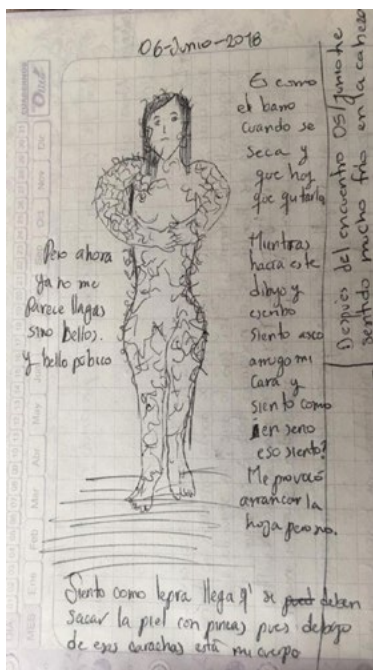 06-Junio-2018
Es como
el barro
cuando se
seca y
que hay
que quitarlo
Mientras
hacía este
dibujo y
escribo
siento asco
arrugo mi
cara y
siento como
¿en serio
eso siento?
Me provocó
arrancar la
hoja pero no.
Pero ahora
ya no me
Parece llagas
sino bellos.
y bello púbico
Siento como lepra llega q' se deben
sacar la piel con pinzas pues debajo
de esas carachas está mi cuerpo
Después del encuentro 05/junio he
sentido mucho frío en la cabeza
Dic
Nov
Oct
Abr
Mar
Feb
Ene